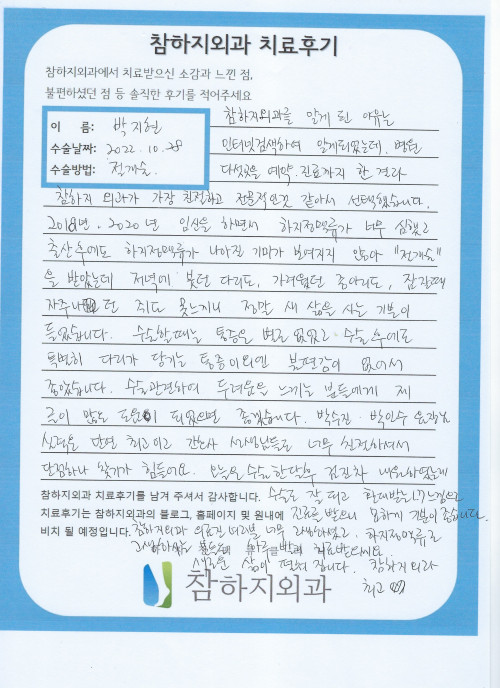 참하지외과 치료후기
참하지외과에서 치료받으신 소감과 느낀 점,
불편하셨던 점 등 솔직한 후기를 적어주세요
이 름: 박지현
수술날짜: 2022. 10. 28
수술방법: 정개술.
참하지외과를 알게 된 이유는
인터넷검색하여 알게되었는데. 병원
다섯곳을 예약. 진료까지 한 결과
참하지 외과가 가장 친절하고 전문적인것 같아서 선택했습니다.
2018년. 2020년 임신을 하면서 하지정맥류가 너무 심했고
출산후에도 하지정맥류가 나아진 기미가 보여지지 않아 "정개술"
을 받았는데 저녁에 붓던 다리도, 가려웠던 종아리도, 잠잘때
자주나던 쥐도 못느끼니 정말 새 삶을 사는 기분이
들었습니다. 수술할때는 통증을 별로 없었고. 수술후에도
특별히 다리가 당기는 통증이외엔 불편감이 없어서
좋았습니다. 수술관련하여 두려움을 느끼는 분들에게 제
글이 많은 도움이 되었으면 좋겠습니다. 박수진. 박인수 원장님
실력은 단연 최고이고 간호사 선생님들도 너무 친절하셔서
단점하나 찾기가 힘들어요. 오늘은 수술한달후 검진차 내원하였는데
수술도 잘 되고 환대받는(?) 느낌으로
진료를 받으니 묘하게 기분이 좋습니다.
참하지외과 치료후기를 남겨 주셔서 감사합니다.
치료후기는 참하지외과의 블로그, 홈페이지 및 원내에
비치 될 예정입니다.
참하지외과 의료진 여러분 너무 감사하였고, 하지정맥류로
고생하시는 분들도 치료받으세요.
새로운 삶이 펼쳐집니다. 참하지외과
최고
참하지외과